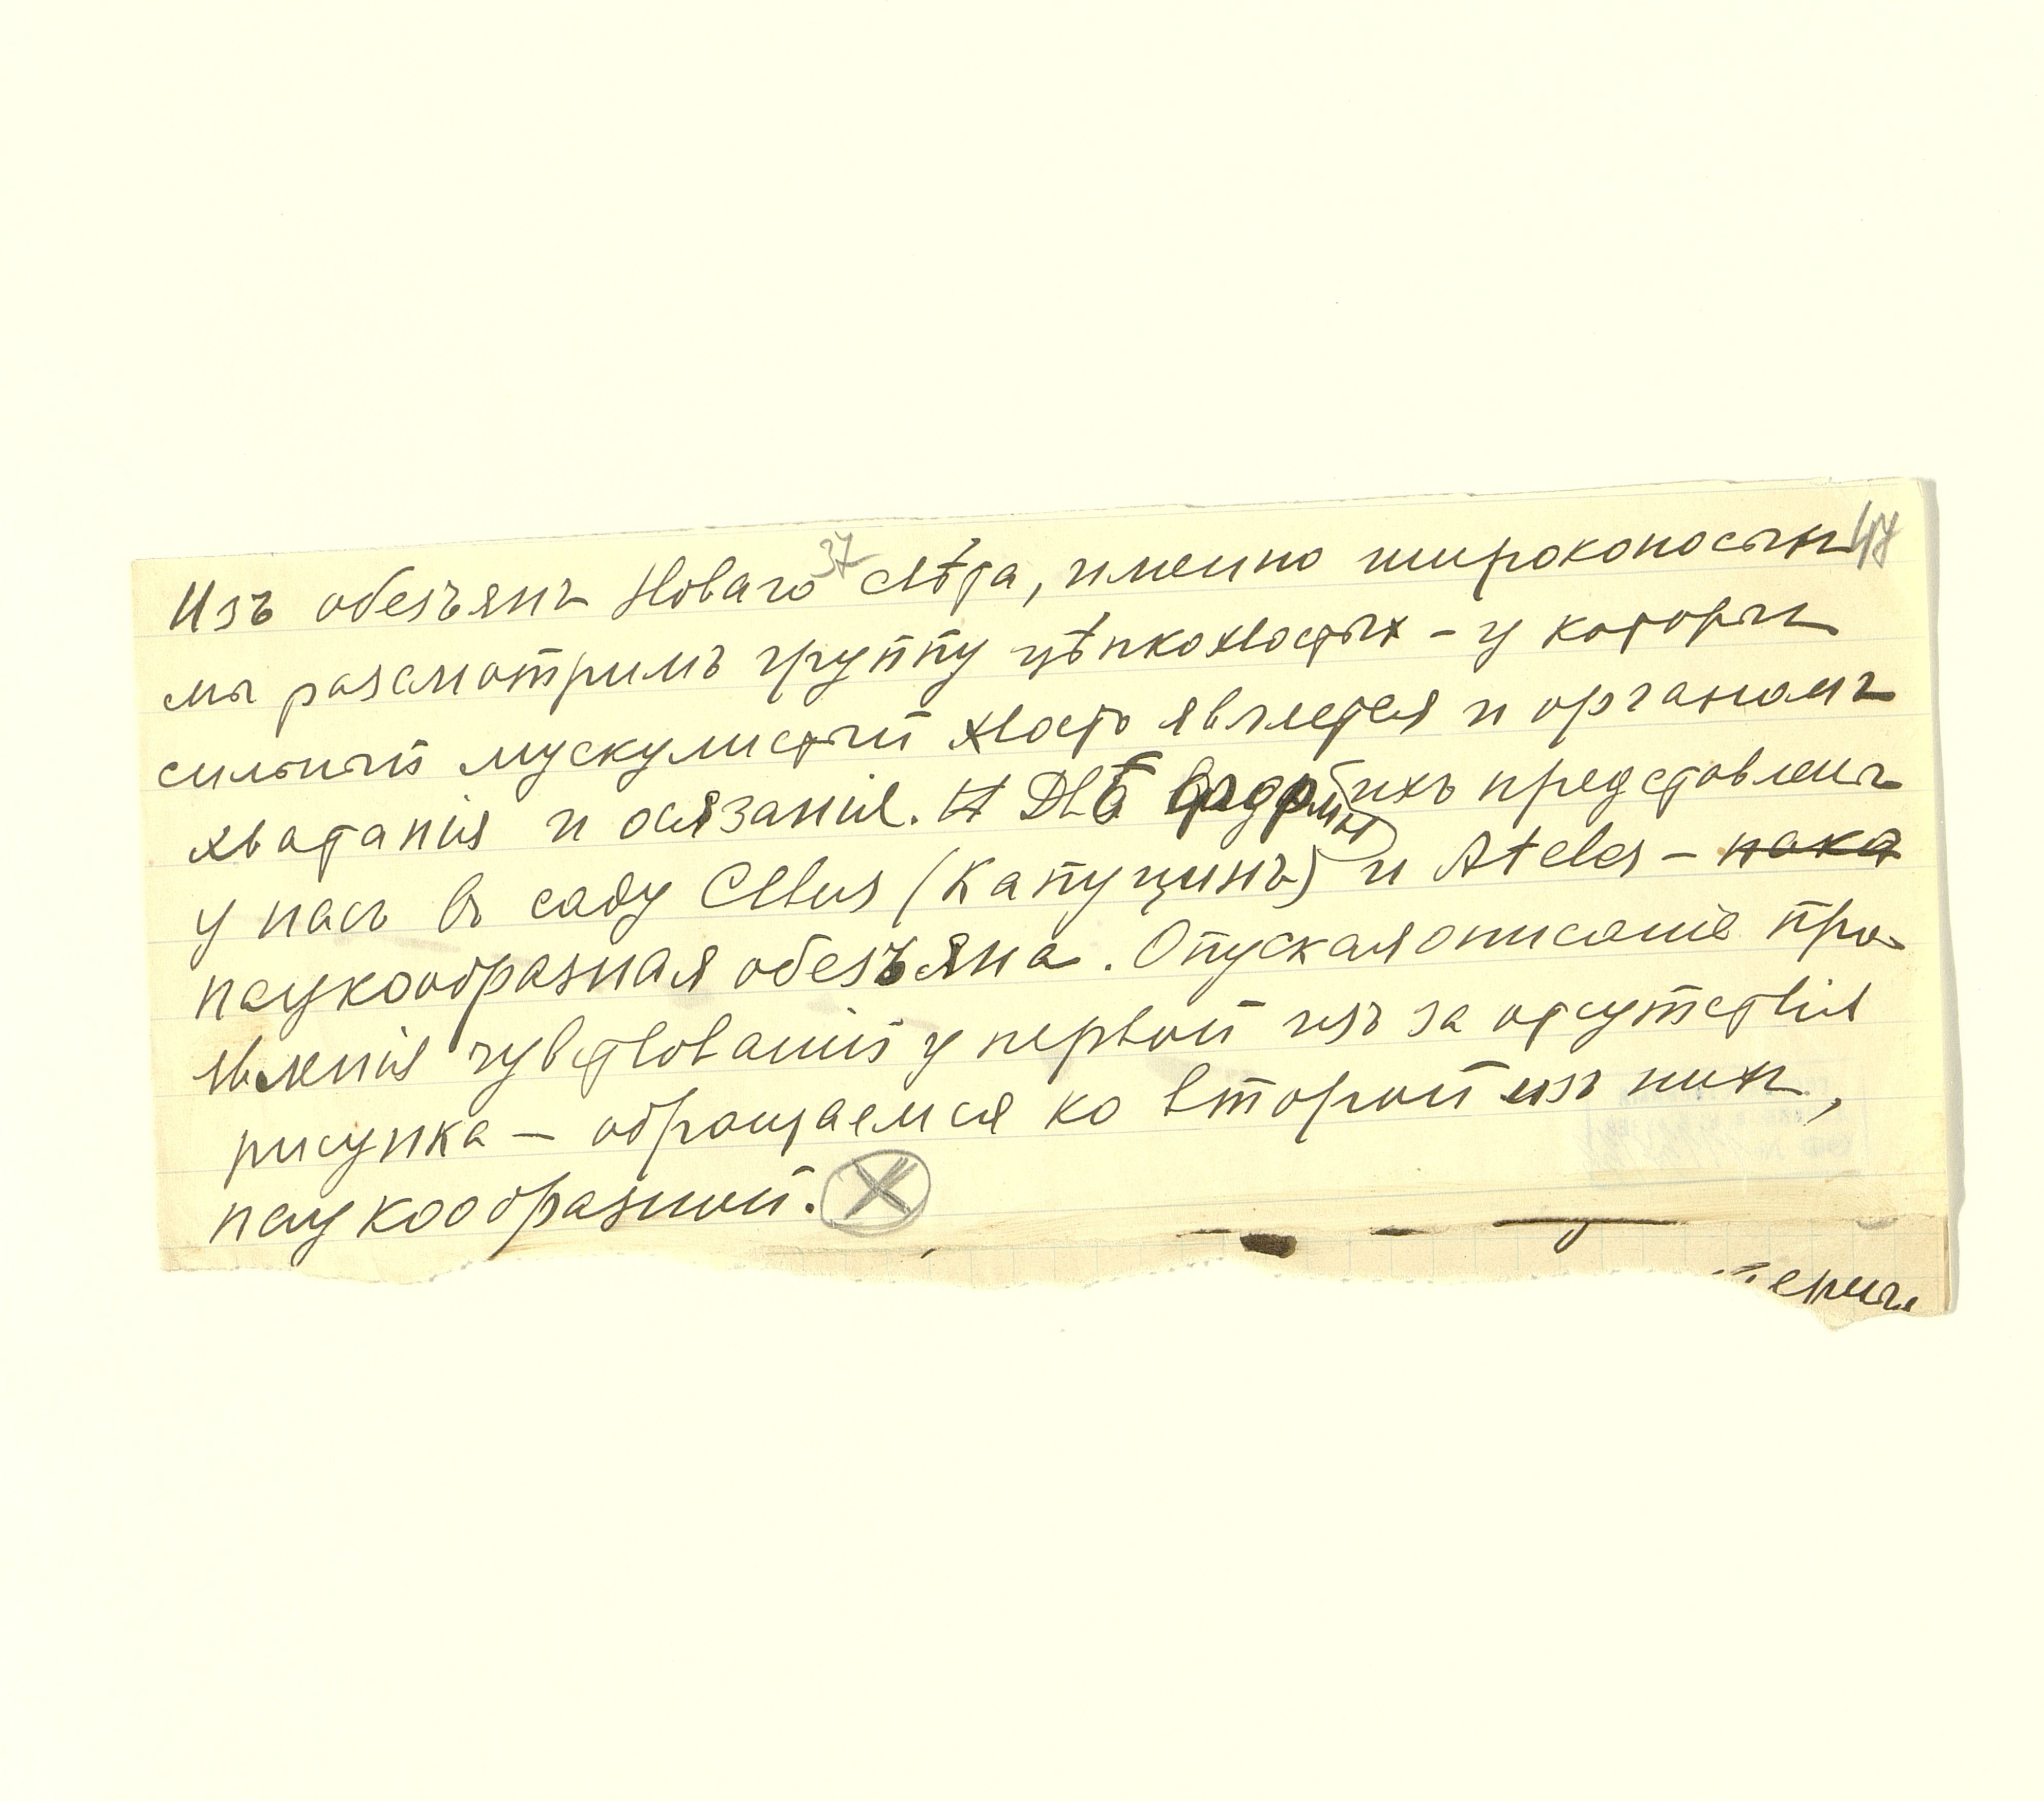 37
47
Изъ обезьянъ Новаго свѣта, именно широконосыхъ
мы разсмотримъ группу цѣпкохвостых – у которыхъ
сильный мускулистый хвостъ является и органомъ
хватанія и осязанія. Два ихъ представлены
у насъ въ саду Cebus (Капуцинъ) и Ateles –
паукообразная обезьяна. Опуская описаніе про-
явленія чувствованій у первой изъ за отсутствія
рисунка – обращаемся ко второй изъ нихъ,
паукообразной.